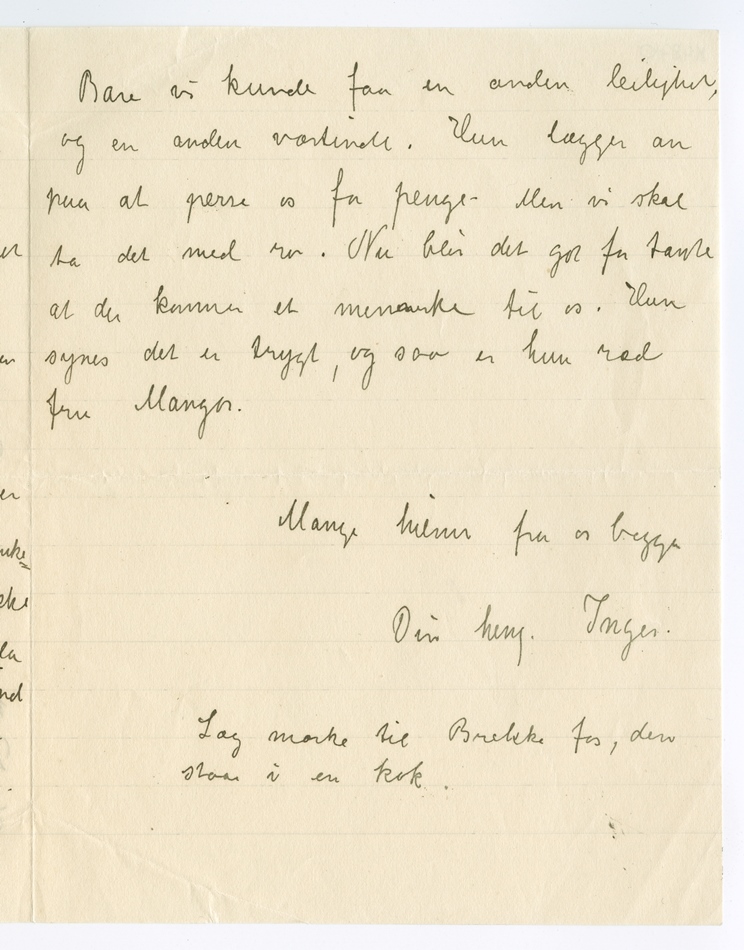 Bare vi kunde faa en anden leilighet,
og en anden værtinde. Hun lægger an
paa at perse os for penge. Men vi skal
ta det med ro. Nu blir det got for tante
at der kommer et menneske til os. Hun
synes det er trygt, og saa er hun ræd
fru Mangor.
Mange hilsner fra os begge
Din heng. Inger.
Læg mærke til Brekke fos, den
staar i en kok.
er
ske
la
nd